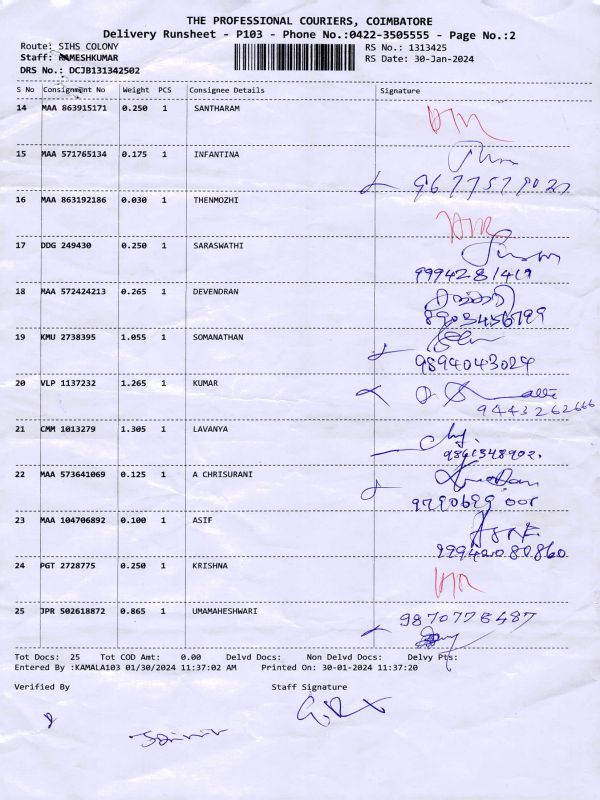 THE PROFESSIONAL COURIERS, COIMBATORE
Delivery Runsheet - P103 - Phone No.:0422-3505555 - Page No.:2
Route: SIHS COLONY RS No.: 1313425
Staff: RAMESHKUMAR RS Date: 30-Jan-2024
DRS No.: DCJB131342502
S No Consignment No Weight PCS Consignee Details Signature
14 MAA 863915171 0.250 1 SANTHARAM
15 MAA 571765134 0.175 1 INFANTINA
16 MAA 863192186 0.030 1 THENMOZHI
17 DDG 249430 0.250 1 SARASWATHI
9994281419
18 MAA 572424213 0.265 1 DEVENDRAN
8903456799
19 KMU 2738395 1.055 1 SOMANATHAN
9894043024
20 VLP 1137232 1.265 1 KUMAR
9443262666
21 CMM 1013279 1.305 1 LAVANYA
9841348902.
22 MAA 573641069 0.125 1 A CHRISURANI
9790699 001
23 MAA 104706892 0.100 1 ASIF
99942080860
24 PGT 2728775 0.250 1 KRISHNA
25 JPR 502618872 0.865 1 UMAMAHESHWARI
9870778487
Tot Docs: 25 Tot COD Amt: 0.00 Delvd Docs: Non Delvd Docs: Delvy Pts:
Entered By :KAMALA103 01/30/2024 11:37:02 AM Printed On: 30-01-2024 11:37:20
Verified By Staff Signature